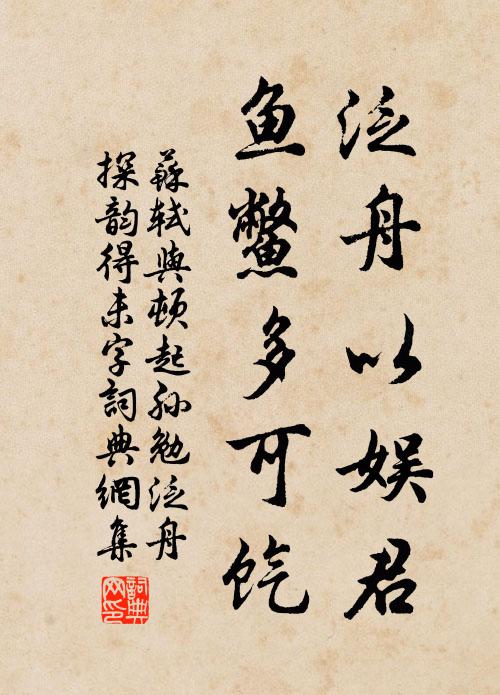 泛舟以娱君
鱼鳖多可饩
蘇軾與頓起孙勉泛舟
探韵得未字詞典網集
詞典网印